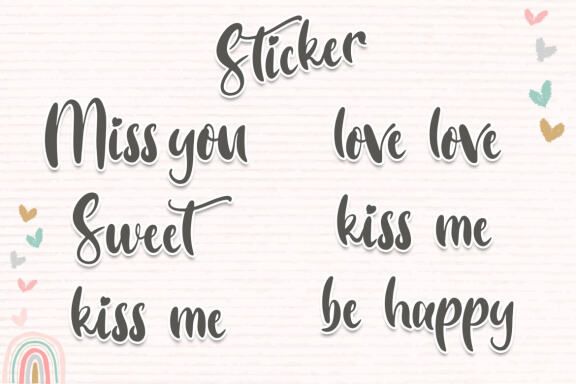 Sticker
Miss you
love love
Sweet
kiss me
kiss me
be happy